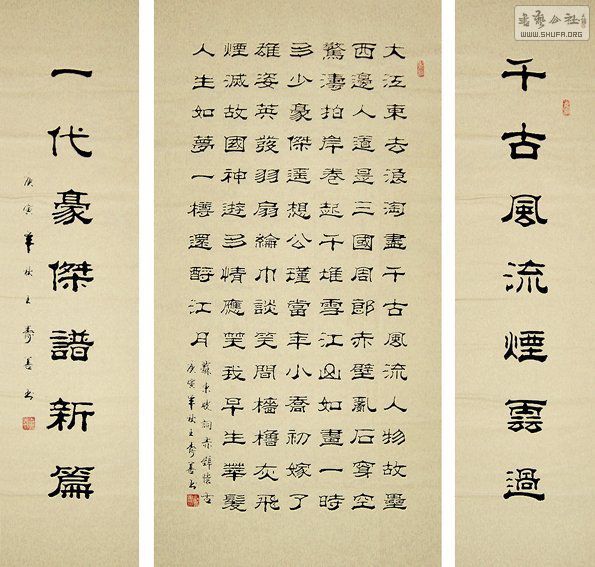 书艺公社
WWW.SHUFA.ORG
千古風流煙雲過
大江東去浪淘盡千古風流人物故壘
西邊人道是三國周郎赤壁亂石穿空
驚濤拍岸卷起千堆雪江山如畫一時
多少豪傑遥想公瑾當年小喬初嫁了
雄姿英發羽扇綸巾談笑間檣櫓灰飛
煙滅故國神遊多情應笑我早生華髮
人生如夢一樽還酹江月
蘇東坡詞赤壁懷古
庚寅年秋王秀善書
一代豪傑譜新篇
庚寅年秋王秀善書